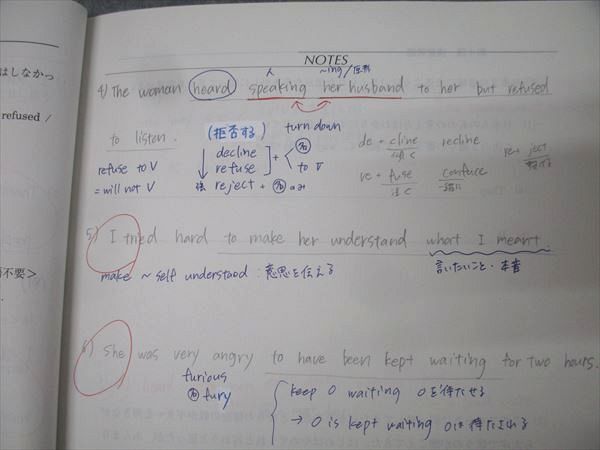 はしなかっ
refused /
不要＞
NOTES
人
~ing/原形
4) The woman heard speaking her husband to her but refused
to listen.
(拒否する)
turn down
refuse to V
= will not V
decline
refuse
reject + 名 のみ
+
名
to V
強
de + cline
recline
re + fuse
confuse
一緒に
re + ject
5) I tried hard to make her understand what I meant.
make ~ self understood : 意思を伝える
言いたいこと・本音
6) She was very angry to have been kept waiting for two hours.
furious
名 fury
keep O waiting Oを待たせる
→ O is kept waiting Oは待たされる